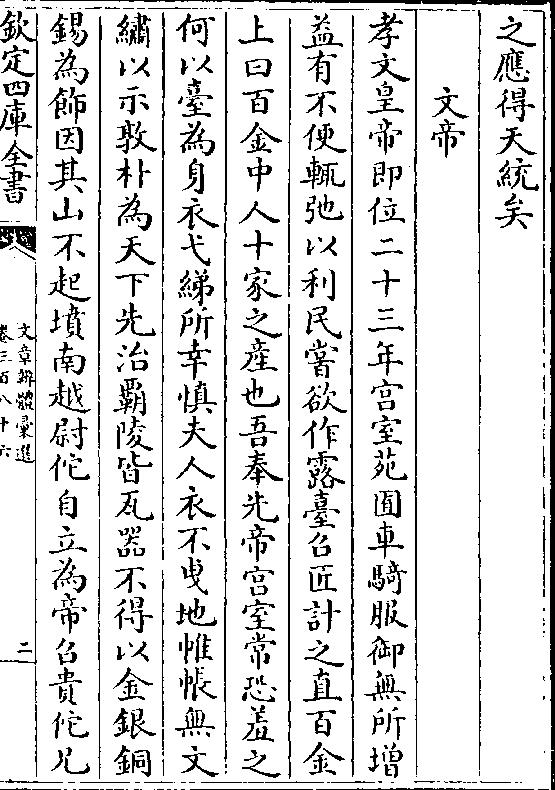 之應得天統矣
文帝
孝文皇帝即位二十三年宫室苑囿車騎服御無所增
益有不便輒弛以利民嘗欲作露臺召匠計之直百金
上曰百金中人十家之產也吾奉先帝宫室常恐羞之
何以臺為身衣弋綈所幸慎夫人衣不曵地帷帳無文
繡以示敦朴為天下先治覇陵皆瓦器不得以金銀銅
錫為飾因其山不起墳南越尉佗自立為帝召貴佗兄
欽定四庫全書
文章辨體彚選
卷三百八十六
二